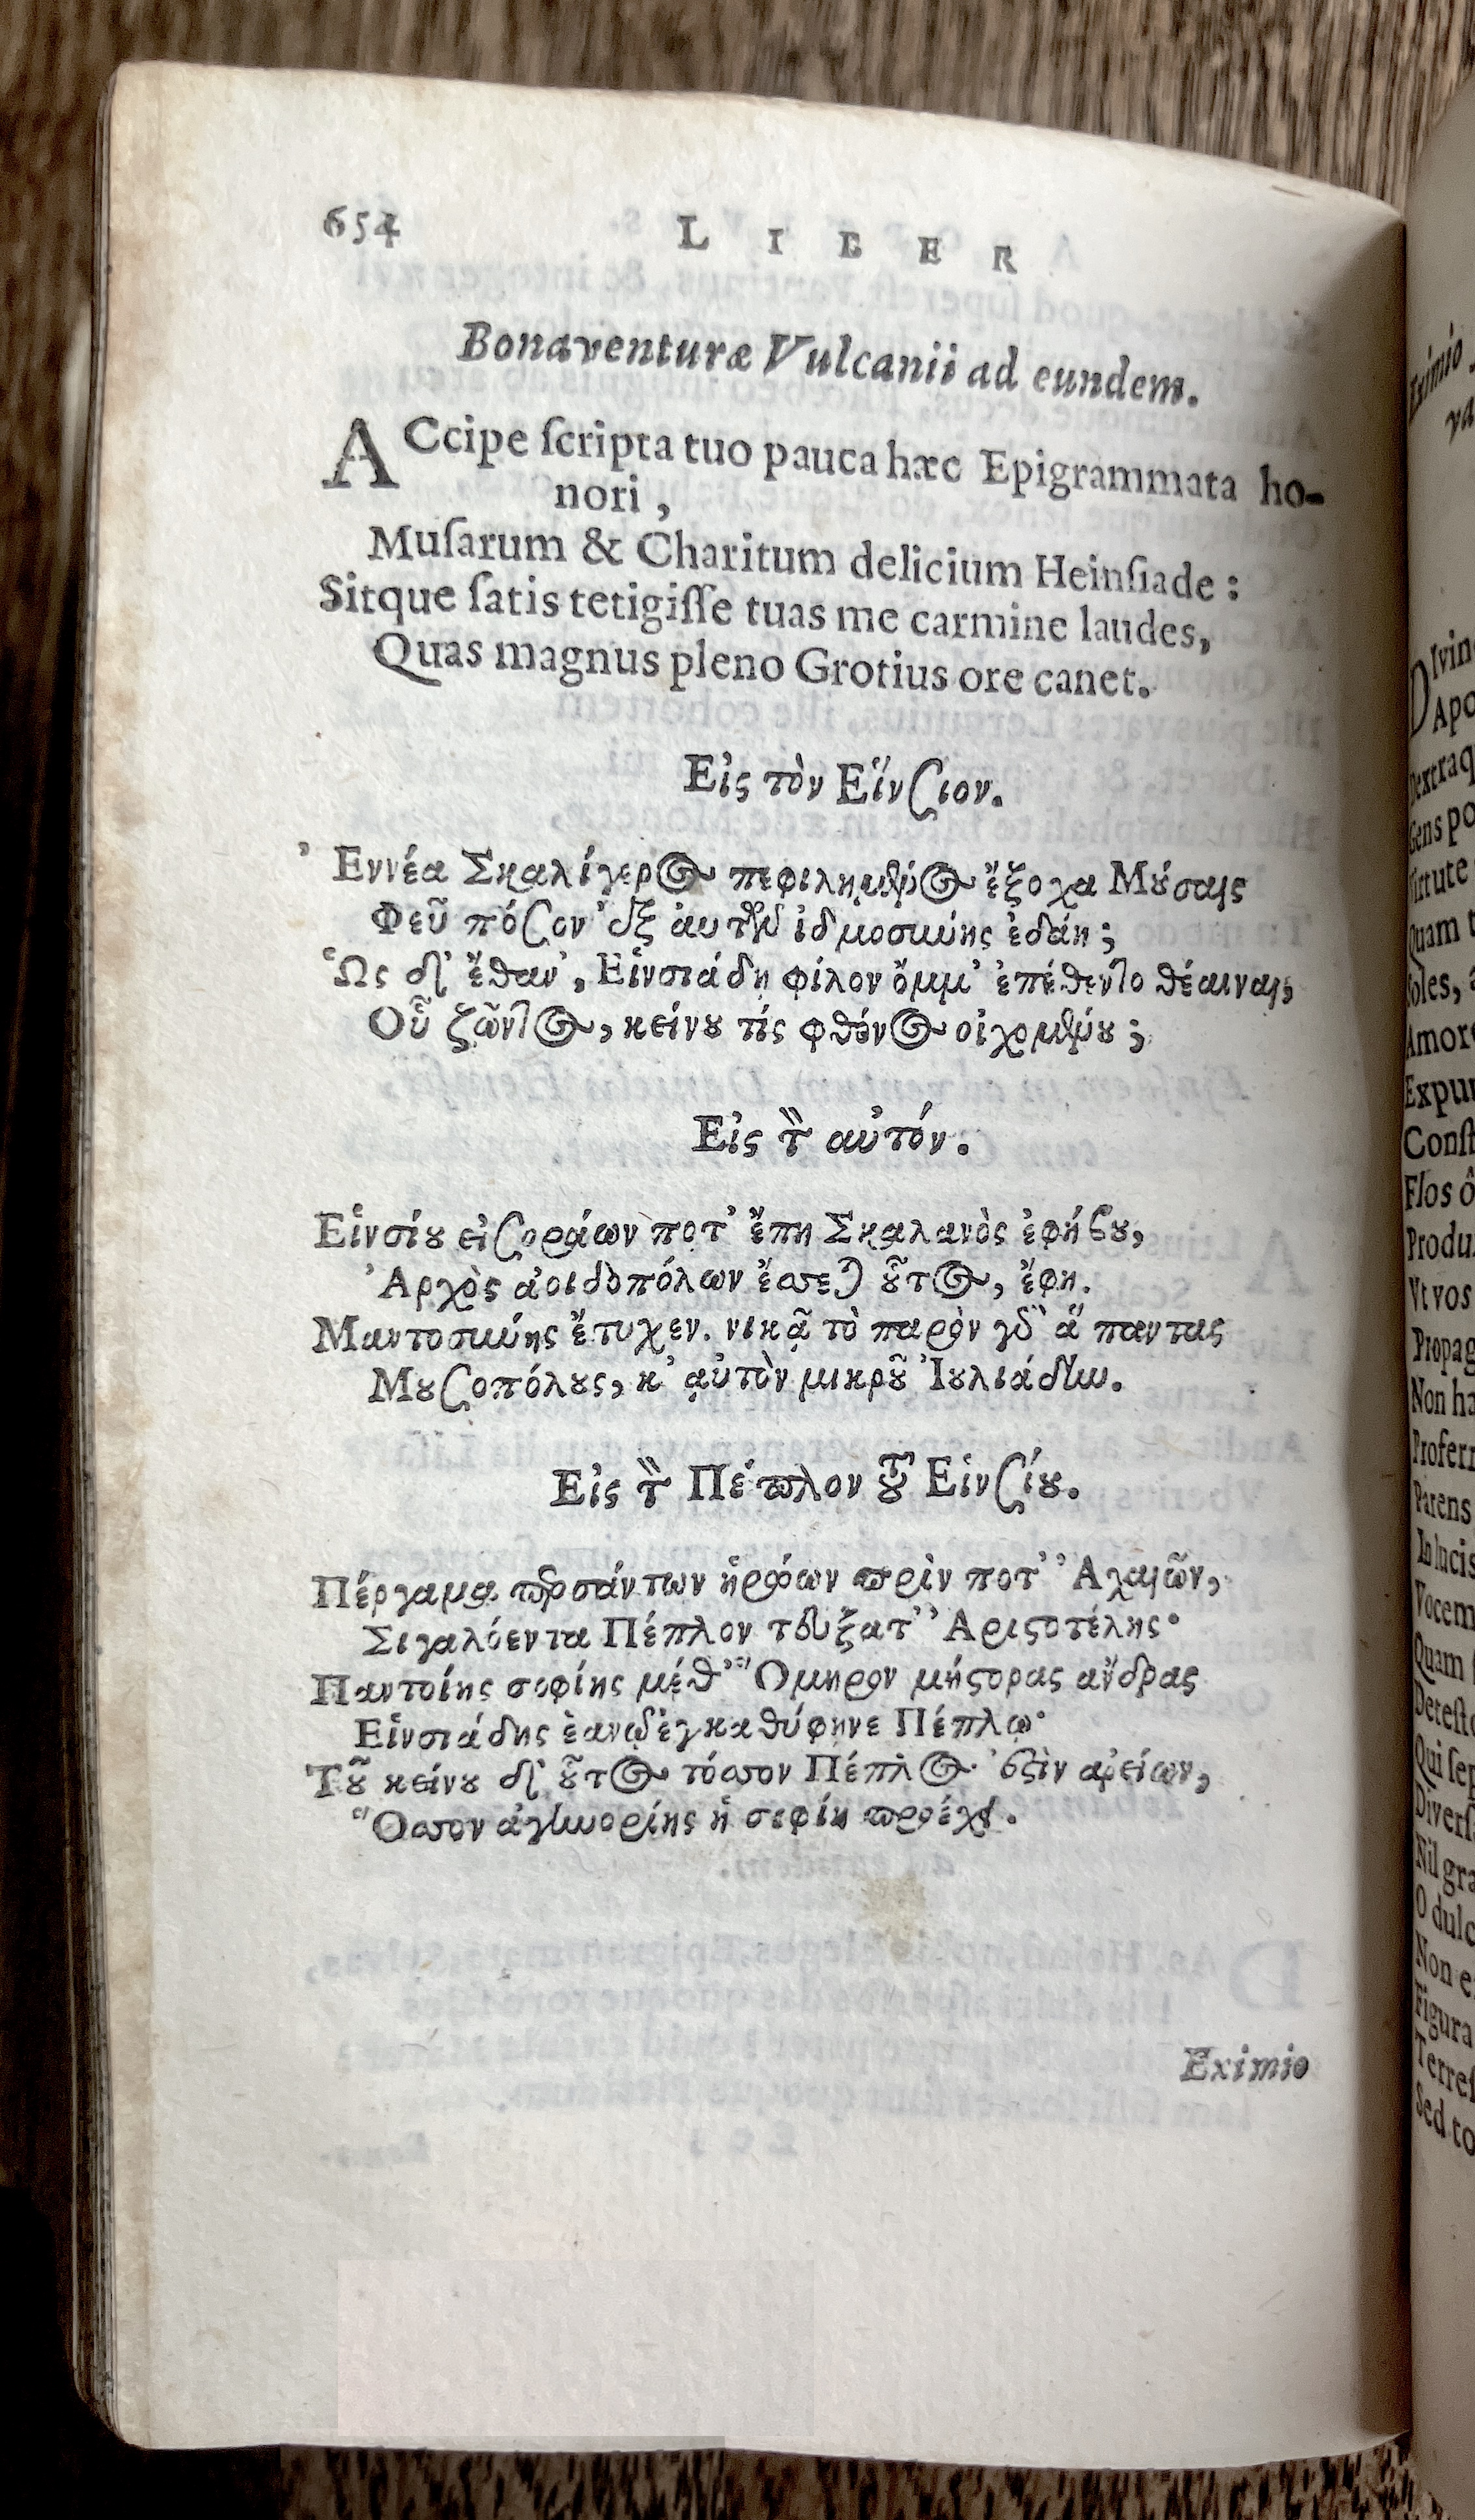 654 LIBER
Bonaventuræ Vulcanii ad eundem.
ACcipe ſcripta tuo pauca hæc Epigrammata ho-
nori,
Muſarum & Charitum delicium Heinſiade:
Sitque ſatis tetigiſſe tuas me carmine laudes,
Quas magnus pleno Grotius ore canet.
Εἰς τὸν Εἵνσιον.
Ἐννέα Σκαλίγερος πεφιλημένος ἔξοχα Μούσαις
Φεῦ πόσον ἐξ ἀυτῶν ἰδμοσύνης ἐδάη;
Ὡς δ' ἔθαν', Εἱνσιάδη φίλον ὄμμ' ἐπέθεντο θέαιναι,
Οὗ ζῶντος, κείνου τίς φθόνος οἰχομένου;
Εἰς τὸν αὐτόν.
Εἱνσίου εἰσοράων ποτ' ἔπη Σκαλανὸς ἐφήβου,
Ἀρχὸς ἀοιδοπόλων ἔσσεται οὗτος, ἔφη.
Μαντοσύνης ἔτυχεν. νικᾷ τὸ παρὸν γὸ ἅπαντας
Μουσοπόλους, κ' αὐτὸν μικροῦ Ἰουλιάδην.
Εἰς τὸν Πέπλον τοῦ Εἱνσίου.
Πέργαμα περσάντων ἡρώων πρὶν ποτ' Ἀχαιῶν,
Σιγαλόεντα Πέπλον τεύξατ' Ἀριστοτέλης·
Παντοίης σοφίης μέθ' Ὅμηρον μήστορας ἄνδρας
Εἱνσιάδης ἑανῷ ἐγκαθύφηνε Πέπλῳ·
Τοῦ κείνου δ' οὗτος τόσσον Πέπλος ἐστὶν ἀρείων,
Ὅσσον ἀγηνορίης ἡ σοφίη προέχει.
Eximio